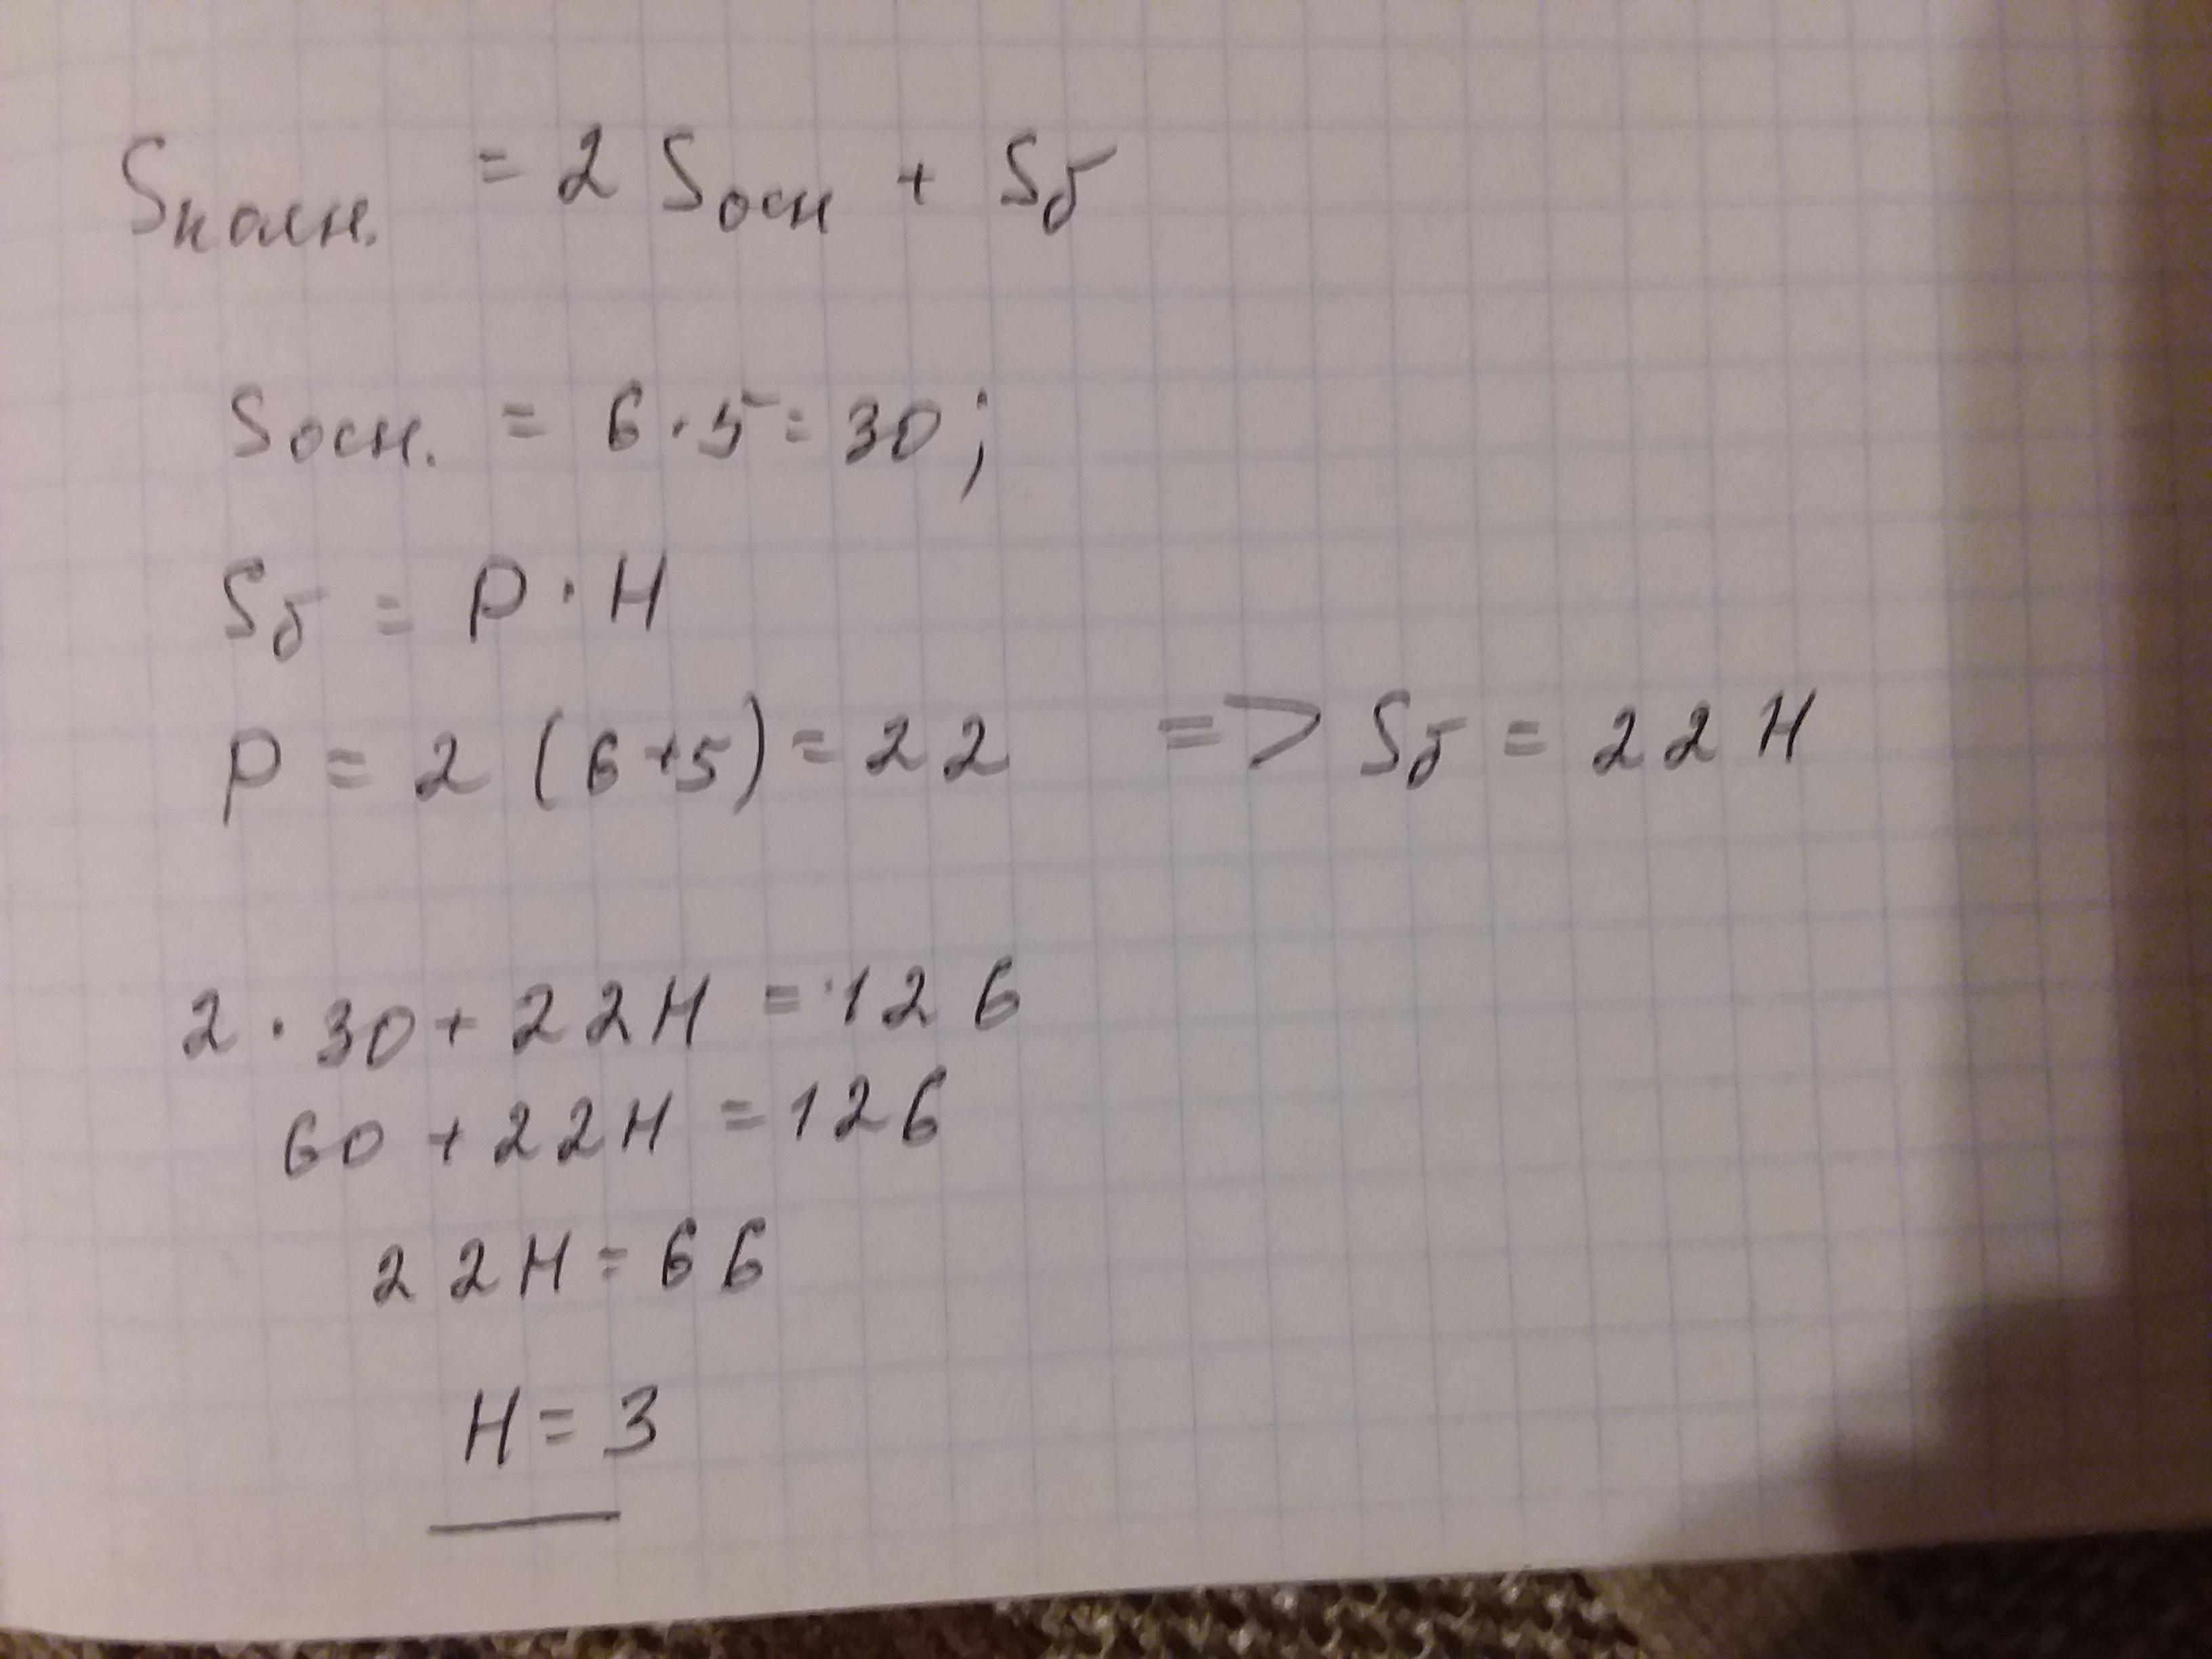 Sполн. = 2 Sосн + Sб
Sосн. = 6 · 5 = 30;
Sб = P · H
P = 2 (6+5) = 22 => Sб = 22 H
2 · 30 + 22H = 126
60 + 22H = 126
22H = 66
H = 3